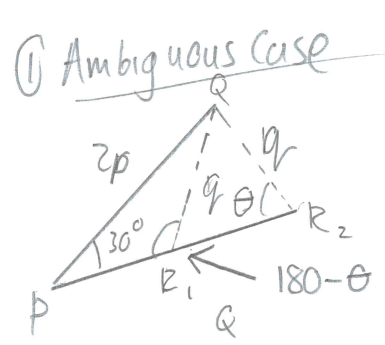 ① Ambiguous Case
Q
2p
q
q
30°
θ
R₂
R₁
180-θ
P
Q